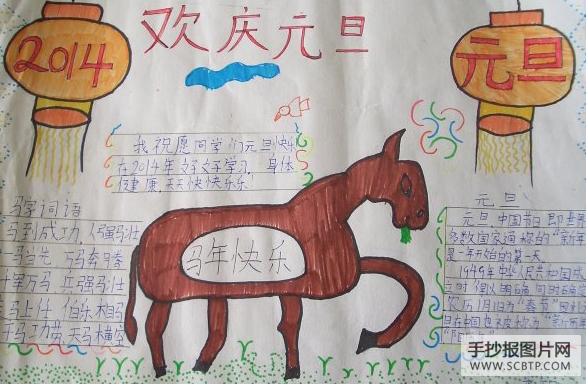 2014
欢庆元旦
元旦
我祝愿同学们元旦快乐
在2014年好好学习,身体
健康,天天快快乐乐!
马字词语
马到成功,人强马壮
一马当先 万马奔腾
军万马 兵强马壮
马上任 伯乐相马
千马功劳 天马横空
马年快乐
元旦
元旦,中国节日,即世界
多数国家通称的“新年
是一年开始的第一天
1949年中华人民共和国
农历1月1日为“春节”
手抄报图片网
WWW.SCBTP.COM